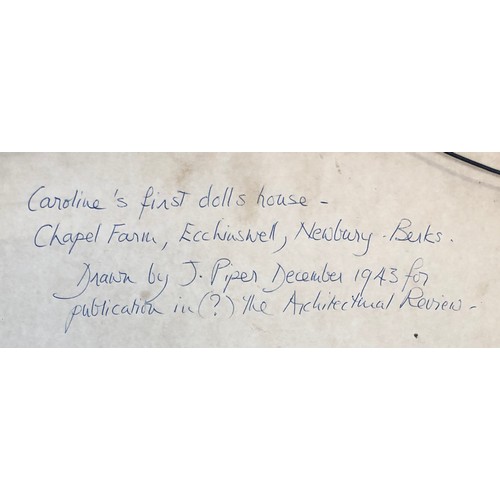 Caroline's first dolls house -
Chapel Farm, Ecchinswell, Newbury - Berks.
Drawn by J. Piper December 1943 for
publication in (?) the Architectural Review -